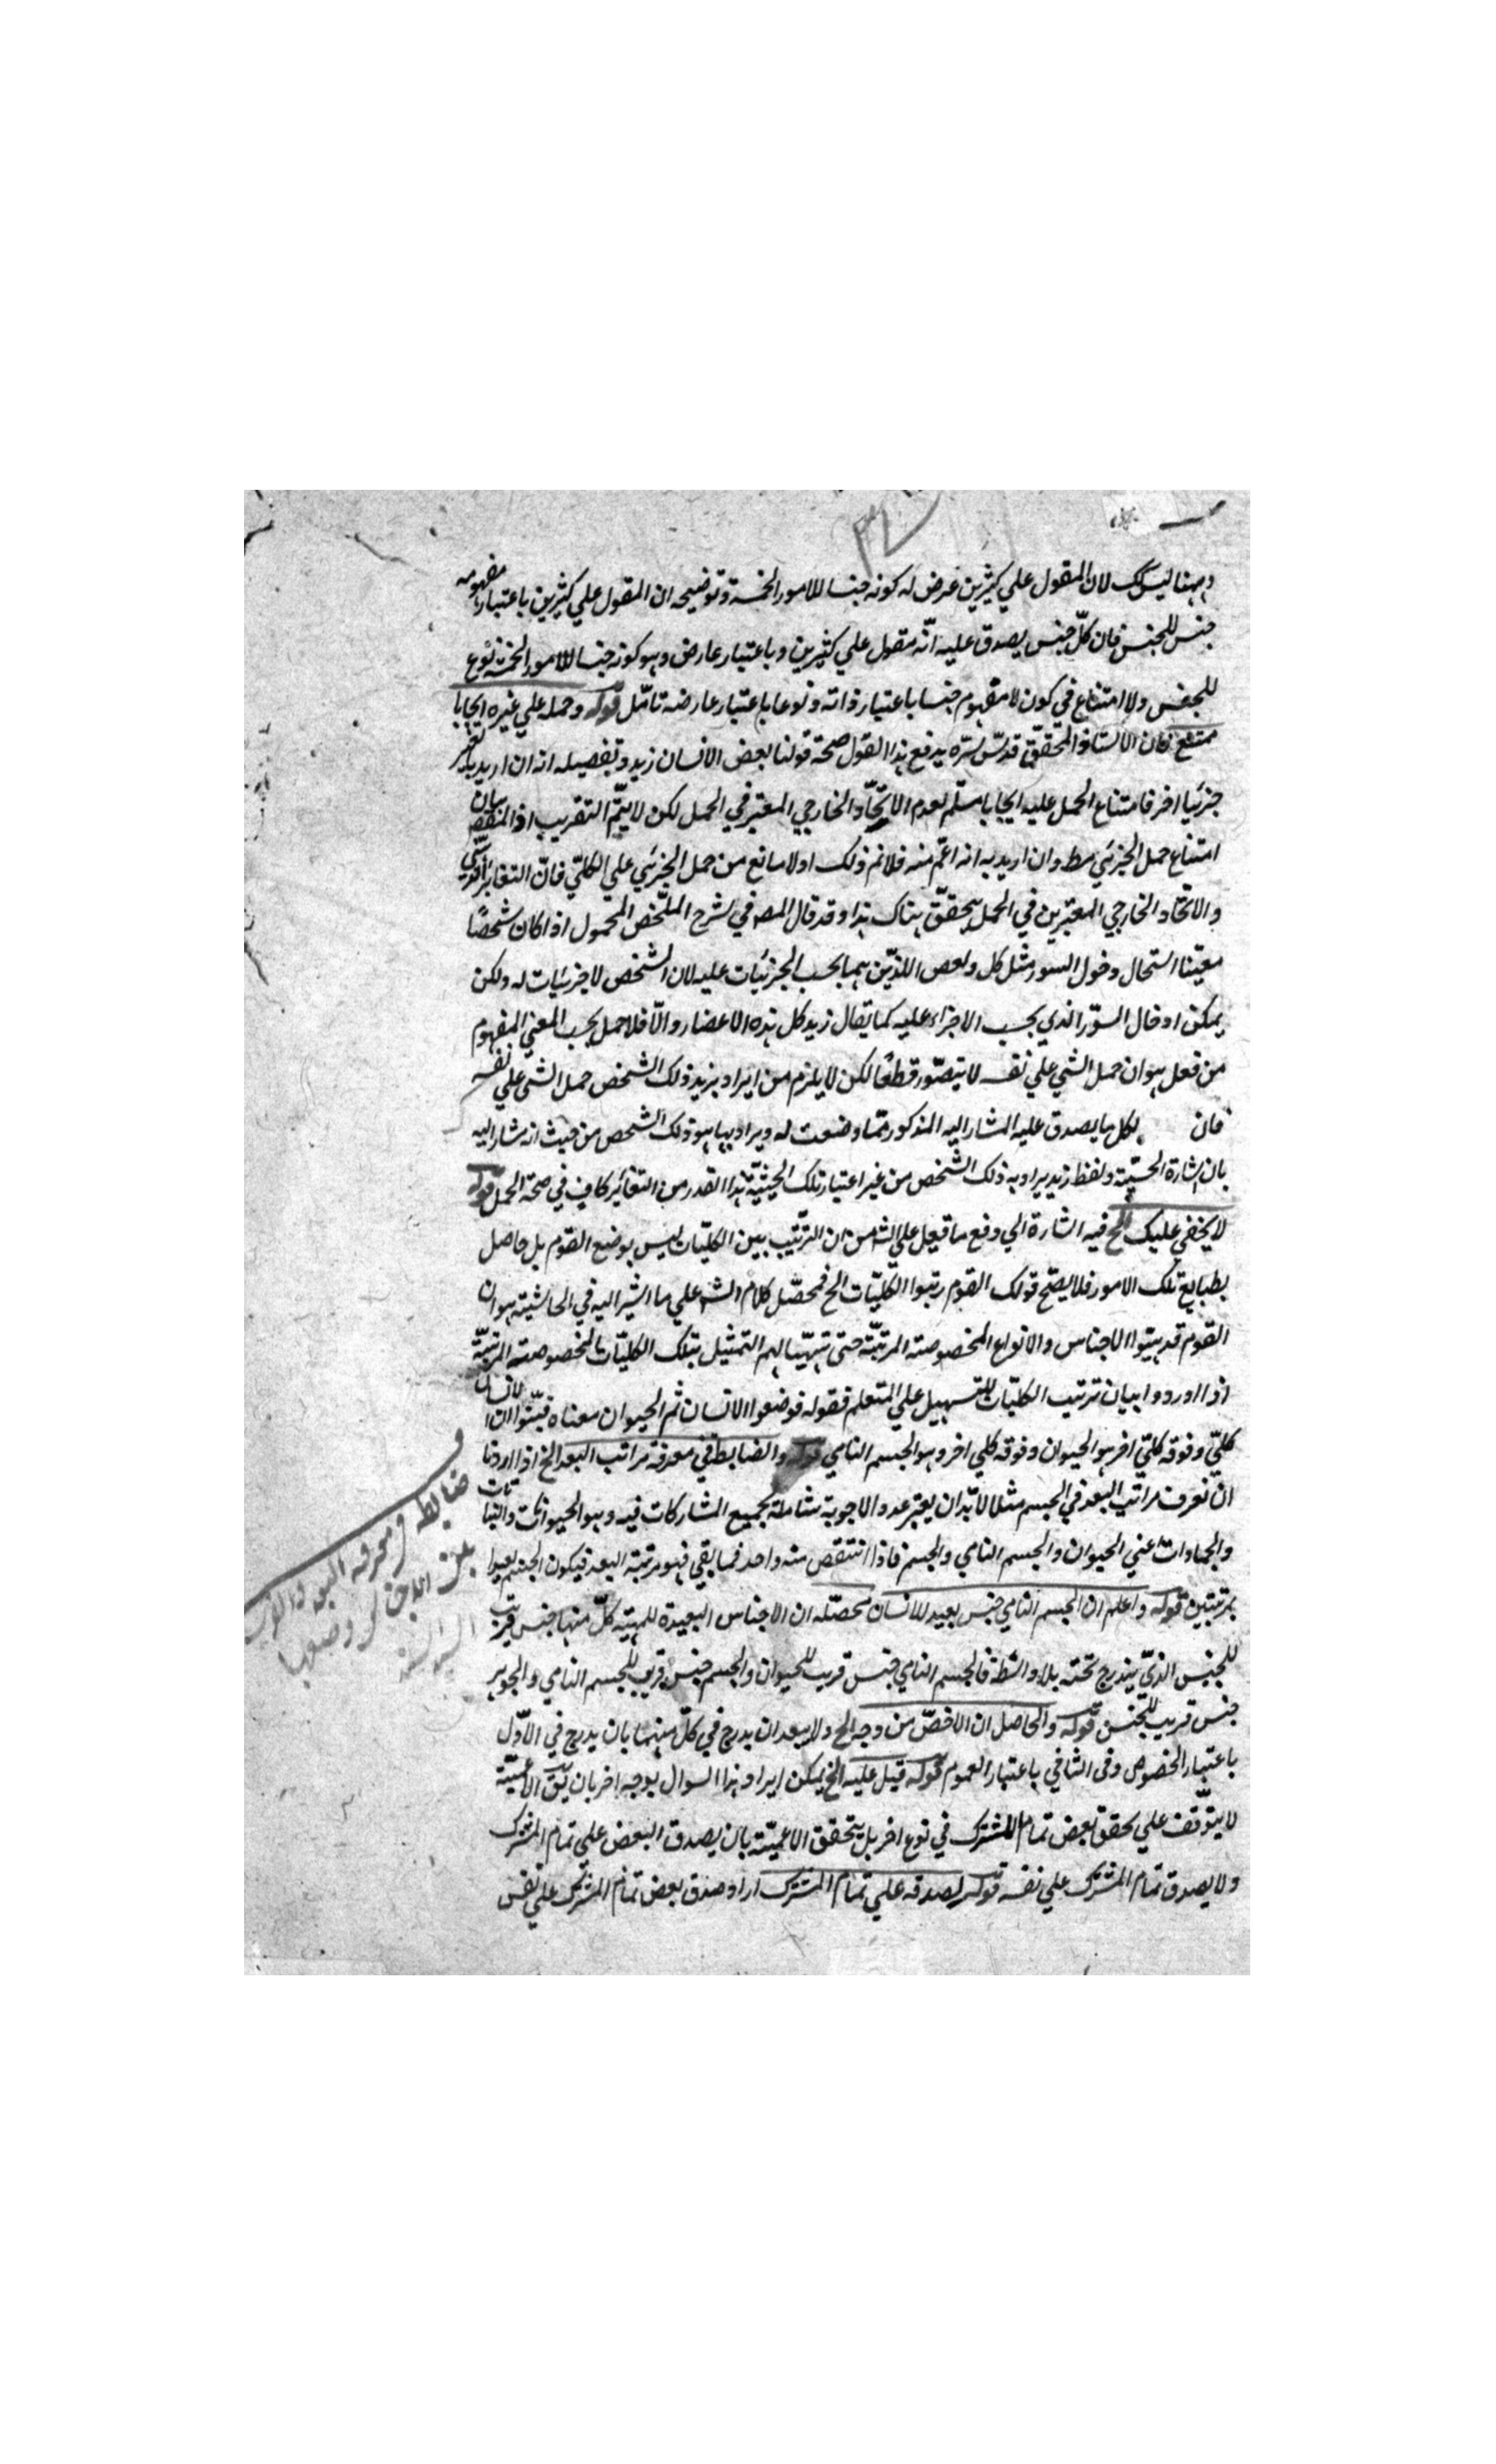 وههنا ليس كك لان المقول علي كثيرين عرض له كونه جنسا للامور الخمسة وتوضيحه ان المقول علي كثيرين باعتبار مفهومه
جنس للجنس فان كلّ جنس يصدق عليه انّه مقول علي كثيرين وباعتبار عارض وهو كونه جنسا للامور الخمسة نوع
للجنس ولا امتناع في كون لا مفهوم جنسا باعتبار ذاته ونوعا باعتبار عارضه تامّل قوله وحمله علي غيره ايجابا
ممتنع فان الاستاذ المحقّق قدسّ سرّه يدفع هذا القول صحة قولنا بعض الانسان زيد وتفصيله انه ان اريد بالغير
جزئيا اخر فامتناع الحمل عليه ايجابا مسلّم لعدم الاتّحاد الخارجي المعتبر في الحمل لكن لا يتمّ التقريب اذ المقصد بيان
امتناع حمل الجزئي مط وان اريد به انه اعمّ منه فلانم ذلك اولا مانع من حمل الجزئي علي الكلّي فانّ التغاير
والاتّحاد الخارجي المعتبرين في الحمل يتحقّق هناك هذا وقد قال المص في شرح الملخّص المحمول اذا كان شخصًا
معيّنا استحال دخول السور مثل كل وبعض اللذيّن هما بحسب الجزئيات عليه لان الشخص لا جزئيات له ولكن
يمكن ادخال السوّر الذي بحسب الاجزاء عليه كما يقال زيد كل هذه الاعضاء والّا فلا حمل بحسب المعني المفهوم
من فعل هو ان حمل الشي علي نفسه لا يتصّور قطعًا لكن لا يلزم من ايراد بزيد ذلك الشخص حمل الشي علي نفسه
فان لكل ما يصدق عليه المشار اليه المذكور ممّا وضعت له ويراد بها هو ذلك الشخص من حيث انه مشار اليه
بان اشارة الحسّية ولفظ زيد يراد به ذلك الشخص من غير اعتبار تلك الحيثيّة هذا القدر من التغاير كاف في صحة الحمل قوله
لا يخفي عليك الخ فيه اشارة الي دفع ما قيل علي الشه من ان الترتيب بين الكليّات ليس بوضع القوم بل حاصل
بطبايع تلك الامور فلا يصّح قولك القوم رتبوا الكليّات الخ فمحصّل كلام الشه علي ما اشير اليه في الحاشية هو ان
القوم قد بيتوا الاجناس والانواع المخصوصة المرتبّة حتي تهيّا لهم التمثيل بتلك الكليّات المخصوصة المرتبّة
اذا اوردوا بيان ترتيب الكليّات للتسهيل علي المتعلم فقوله فوضعوا الانسان ثم الحيوان معناه فبيّنوا ان الانسان
كلّي وفوقه كلّي اخر هو الحيوان وفوقه كلي اخر وهو الجسم النامي قوله والضابط في معرفة مراتب البعد الخ اذا اردنا
ان نعرف مراتب البعد في الجسم مثلا لا بّد ان يعتبر عدد الاجوبة شاملة بجميع المشاركات فيه وهو الحيوانات والنباتات
والجمادات اعني الحيوان والجسم النامي والجسم فاذا انتقص منه واحد فما بقي فهو مرتبة البعد فيكون الجسم بعيدا
بمرتبتين قوله واعلم ان الجسم النامي جنس بعيد للانسان محصّله ان الاجناس البعيدة للمهيّة كلّ منها جنس قريب
للجنس الذيّ يندرج تحته بلا واسطة فالجسم النامي جنس قريب للحيوان والجسم جنس قريب للجسم النامي والجوهر
جنس قريب للجسم قوله والحاصل ان الاخصّ من وجه الخ ولا يبعد ان يدرج في كلّ منهما بان يدرج في الاوّل
باعتبار الخصوص وفي الثاني باعتبار العموم قوله قيل عليه الخ يمكن ايراد هذا السوال بوجه اخر بان يّق الاعميّة
لا يتوّقف علي تحقق بعض تمام المشترك في نوع اخر بل يتحقق الاعميّة بان يصدق البعض علي تمام المشترك
ولا يصدق تمام المشترك علي نفسه قوله لصدقه علي تمام المشترك اراد صدق بعض تمام المشترك علي نفس
ضابطه في معرفه البعد